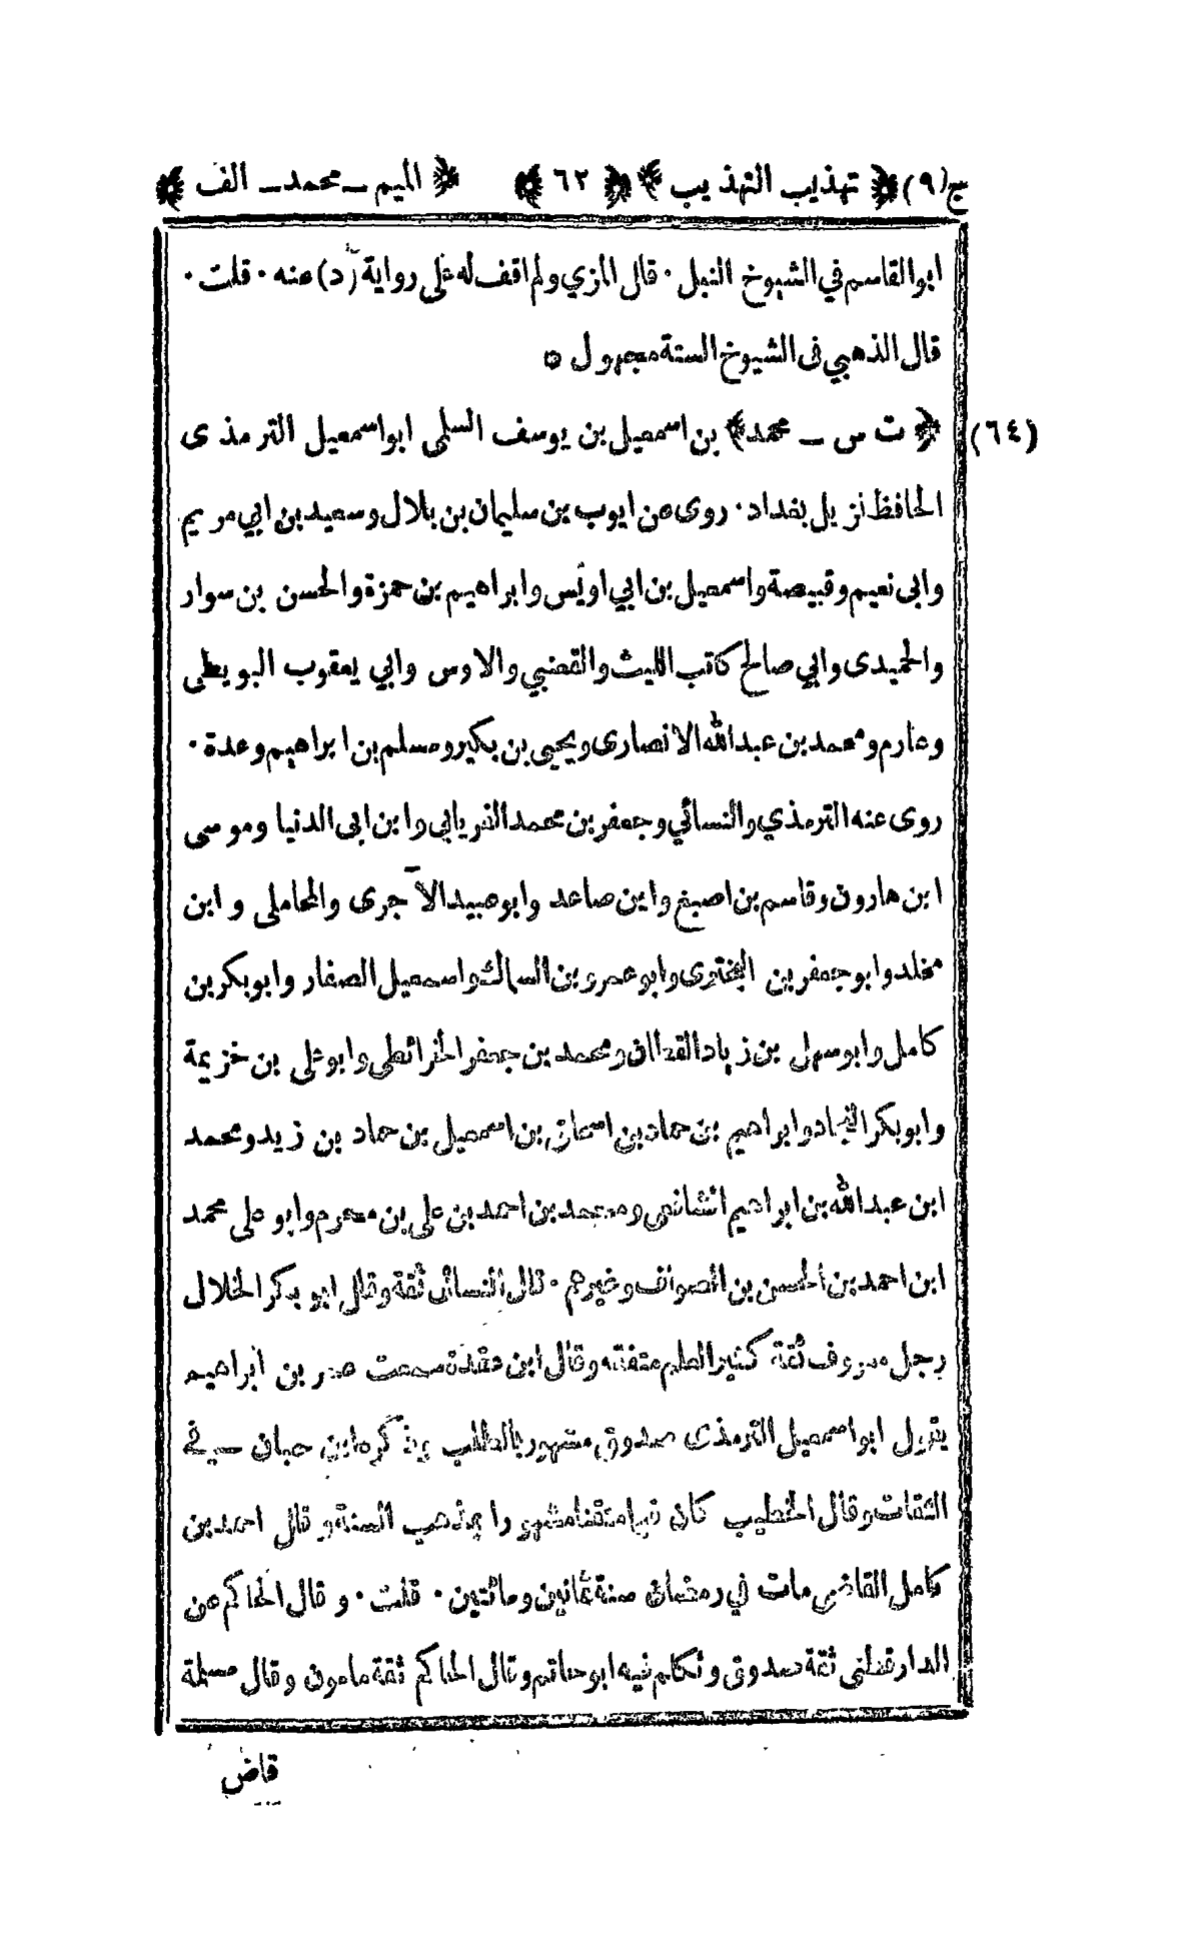 ج(٩) ﴿ تهذيب التهذيب ﴾ ﴿ ٦٢ ﴾ ﴿ الميم ــ محمد ــ الف ﴾
ابوالقاسم في الشيوخ النبل · قال المزي ولم اقف له على رواية (د) عنه · قلت ·
قال الذهبي فى الشيوخ الستة مجهول ه
(٦٤) ﴿ ت س ــ محمد ﴾ بن اسمعيل بن يوسف السلمى ابواسمعيل الترمذى
الحافظ نزيل بغداد · روى عن ايوب بن سليمان بن بلال وسعيد بن ابي مريم
وابى نعيم وقبيصة واسمعيل بن ابي اويس وابراهيم بن حمزة والحسن بن سوار
والحميدى وابي صالح كاتب الليث والقعنبي والاوس وابي يعقوب البويطى
وعارم ومحمد بن عبدالله الانصارى ويحيى بن بكير ومسلم بن ابراهيم وعدة ·
روى عنه الترمذي والنسائي وجعفر بن محمد الفريابي وابن ابى الدنيا وموسى
ابن هارون وقاسم بن اصبغ وابن صاعد وابوعبيد الآجرى والمحاملى وابن
مخلد وابوجعفر بن البختري وابوعمرو بن السماك واسمعيل الصفار وابوبكر بن
كامل وابوسهل بن زياد القطان ومحمد بن جعفر الخرائطى وابوعلى بن خزيمة
وابوبكر النجاد وابراهيم بن حماد بن اسحاق بن اسمعيل بن حماد بن زيد ومحمد
ابن عبدالله بن ابراهيم الشافعى ومحمد بن احمد بن على بن محرم وابو على محمد
ابن احمد بن الحسن بن الصواف وغيرهم · قال النسائى ثقة وقال ابو بكر الخلال
رجل معروف ثقة كثير العلم متفقه وقال ابن عقدة سمعت عمر بن ابراهيم
يقول ابواسمعيل الترمذى صدوق مشهور بالطلب وذكره ابن حبان فى
الثقات وقال الخطيب كان فهما متقنا مشهورا بمذهب السنة وقال احمد بن
كامل القاضى مات في رمضان سنة ثمانين ومائتين · قلت · وقال الحاكم عن
الدارقطنى ثقة صدوق وتكلم فيه ابوحاتم وقال الحاكم ثقة مامون وقال مسلمة
قاض